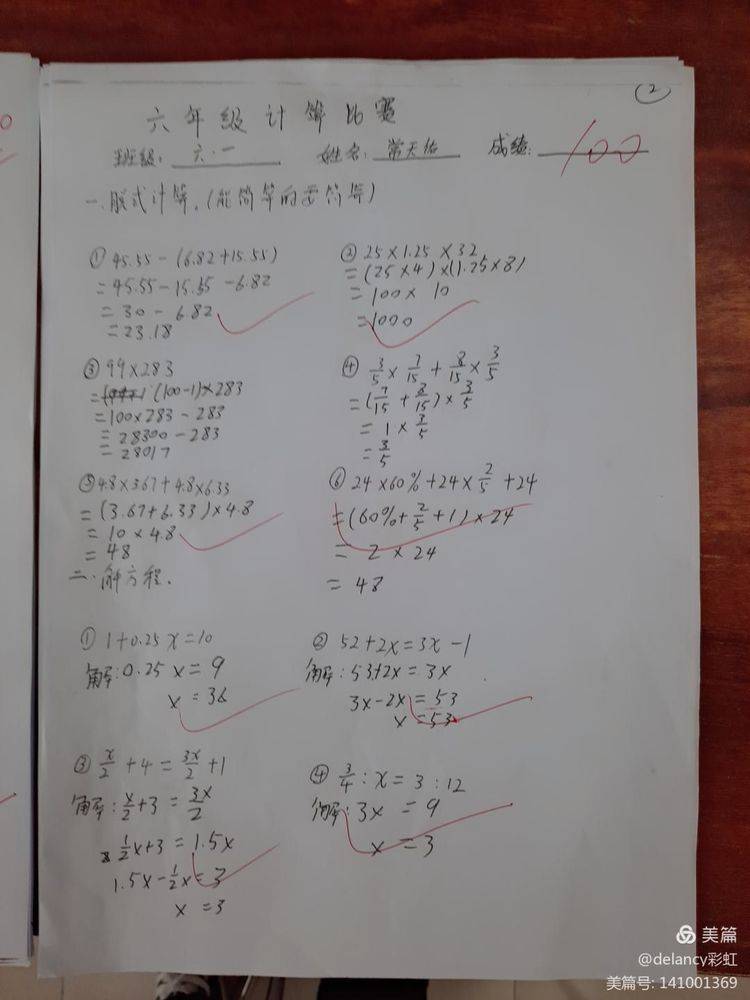 ②
六年级计算比赛
班级: 六.一 姓名: 常天佑 成绩: 100
一.脱式计算.(能简算的要简算)
① 45.55-(6.82+15.55)
=45.55-15.55-6.82
=30-6.82
=23.18
② 25×1.25×32
=(25×4)×(1.25×8)
=100×10
=1000
③ 99×283
=(100-1)×283
=100×283-283
=28300-283
=28017
④ 3/5×7/15+8/15×3/5
=(7/15+8/15)×3/5
=1×3/5
=3/5
⑤ 4.8×3.67+4.8×6.33
=(3.67+6.33)×4.8
=10×4.8
=48
⑥ 24×60%+24×2/5+24
=(60%+2/5+1)×24
=2×24
=48
二.解方程.
① 1+0.25x=10
解:0.25x=9
x=36
② 52+2x=3x-1
解:53+2x=3x
3x-2x=53
x=53
③ x/2+4=3x/2+1
解:x/2+3=3x/2
1/2x+3=1.5x
1.5x-1/2x=3
x=3
④ 3/4:x=3:12
解:3x=9
x=3
美篇
@delancy彩虹
美篇号: 141001369